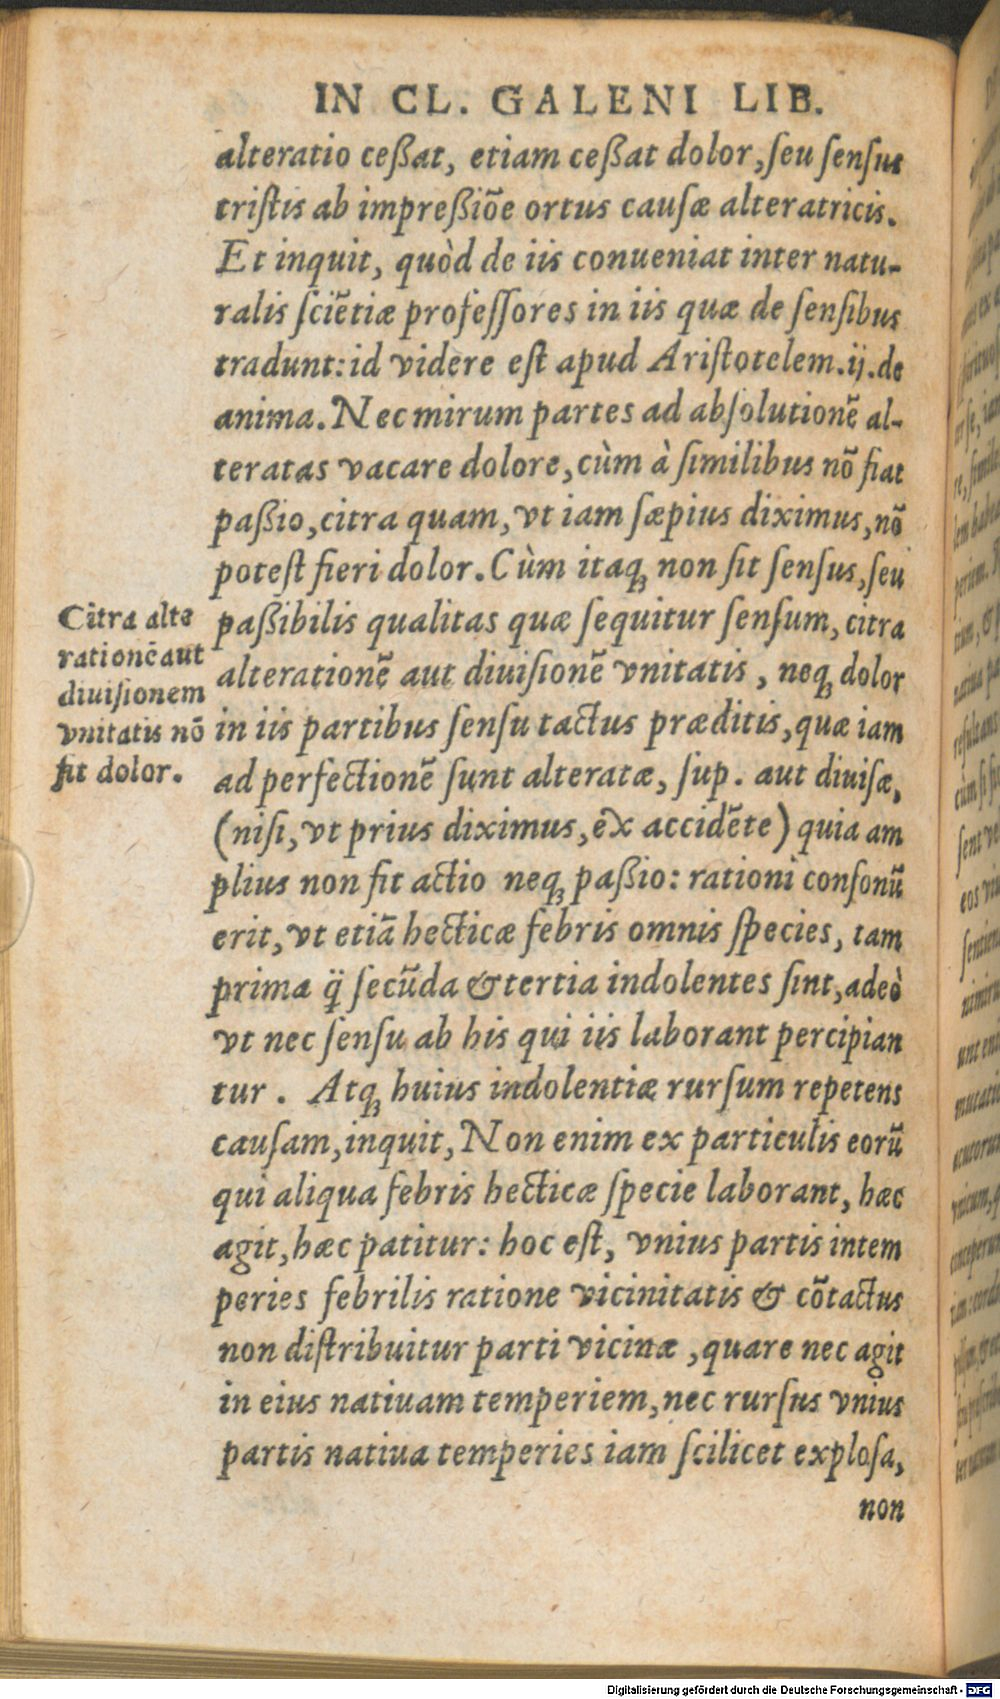 IN CL. GALENI LIB.
alteratio ceßat, etiam ceßat dolor, ſeu ſenſus
triſtis ab impreßiõe ortus cauſæ alteratricis.
Et inquit, quòd de iis conueniat inter natu-
ralis ſciẽtiæ profeſſores in iis quæ de ſenſibus
tradunt: id videre eſt apud Ariſtotelem.ij.de
anima. Nec mirum partes ad abſolutionẽ al-
teratas vacare dolore, cùm à ſimilibus nõ fiat
paßio, citra quam, vt iam ſæpius diximus, nõ
poteſt fieri dolor. Cùm itaq; non ſit ſenſus, ſeu
paßibilis qualitas quæ ſequitur ſenſum, citra
alterationẽ aut diuiſionẽ vnitatis, neq; dolor
in iis partibus ſenſu tactus præditis, quæ iam
ad perfectionẽ ſunt alteratæ, ſup. aut diuiſæ,
(niſi, vt prius diximus, ẽx accidẽte) quia am
plius non fit actio neq; paßio: rationi conſonũ
erit, vt etiã hecticæ febris omnis ſpecies, tam
prima q̃ ſecũda & tertia indolentes ſint, adeò
vt nec ſenſu ab his qui iis laborant percipian
tur. Atq; huius indolentiæ rurſum repetens
cauſam, inquit, Non enim ex particulis eorũ
qui aliqua febris hecticæ ſpecie laborant, hæc
agit, hæc patitur: hoc eſt, vnius partis intem
peries febrilis ratione vicinitatis & cõtactus
non diſtribuitur parti vicinæ, quare nec agit
in eius natiuam temperiem, nec rurſus vnius
partis natiua temperies iam ſcilicet exploſa,
non
Citra alte
rationẽ aut
diuiſionem
vnitatis nõ
fit dolor.
Digitalisierung gefördert durch die Deutsche Forschungsgemeinschaft - DFG